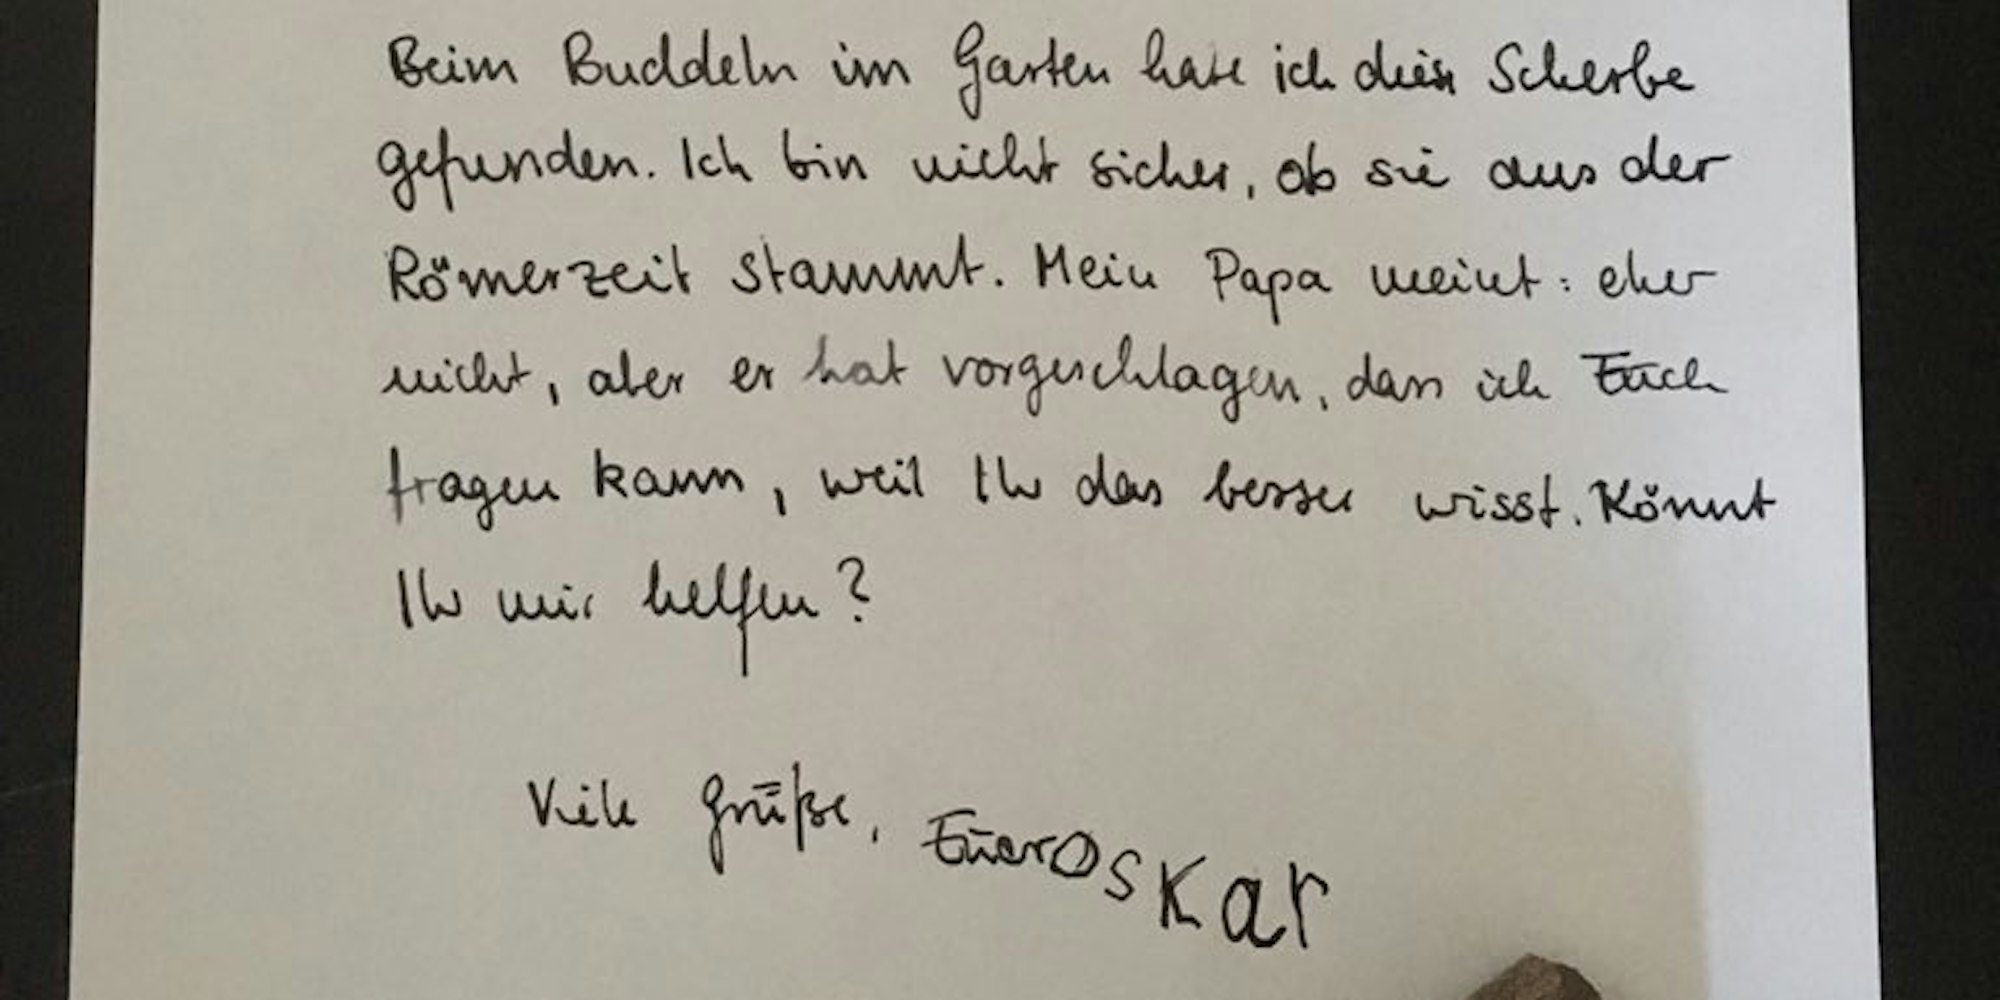 Beim Buddeln im Garten habe ich diese Scherbe
gefunden. Ich bin nicht sicher, ob sie aus der
Römerzeit stammt. Mein Papa meint: eher
nicht, aber er hat vorgeschlagen, dass ich Euch
fragen kann, weil Ihr das besser wisst. Könnt
Ihr mir helfen?
Viele Grüße, Euer Oskar